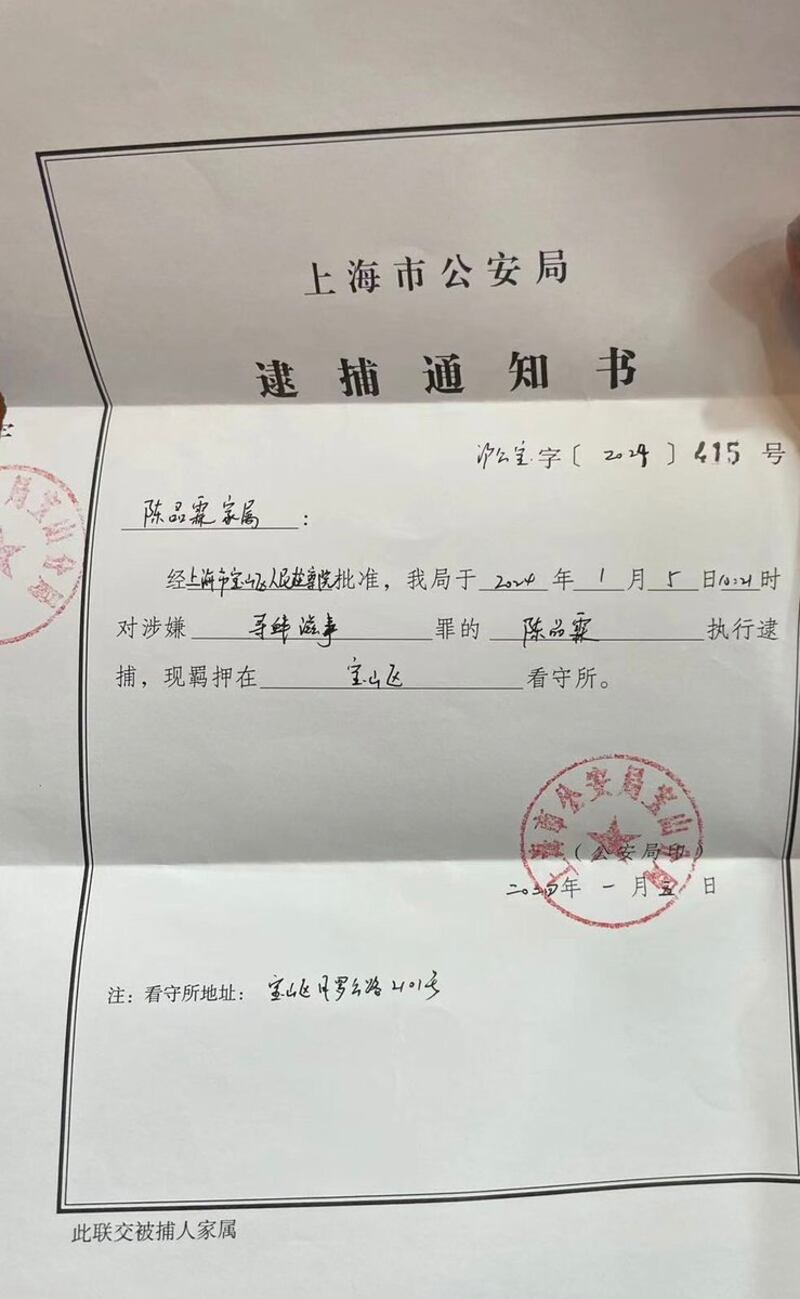 上海市公安局
逮捕通知书
沪公宝字〔2024〕415号
陈品霖家属：
经上海市宝山区人民检察院批准，我局于2024年1月5日10:21时
对涉嫌寻衅滋事罪的陈品霖执行逮
捕，现羁押在宝山区看守所。
上海市公安局宝山分局
（公安局印）
二〇二四年一月五日
注：看守所地址：宝山区月罗公路2101号
此联交被捕人家属
字
局宝山分局